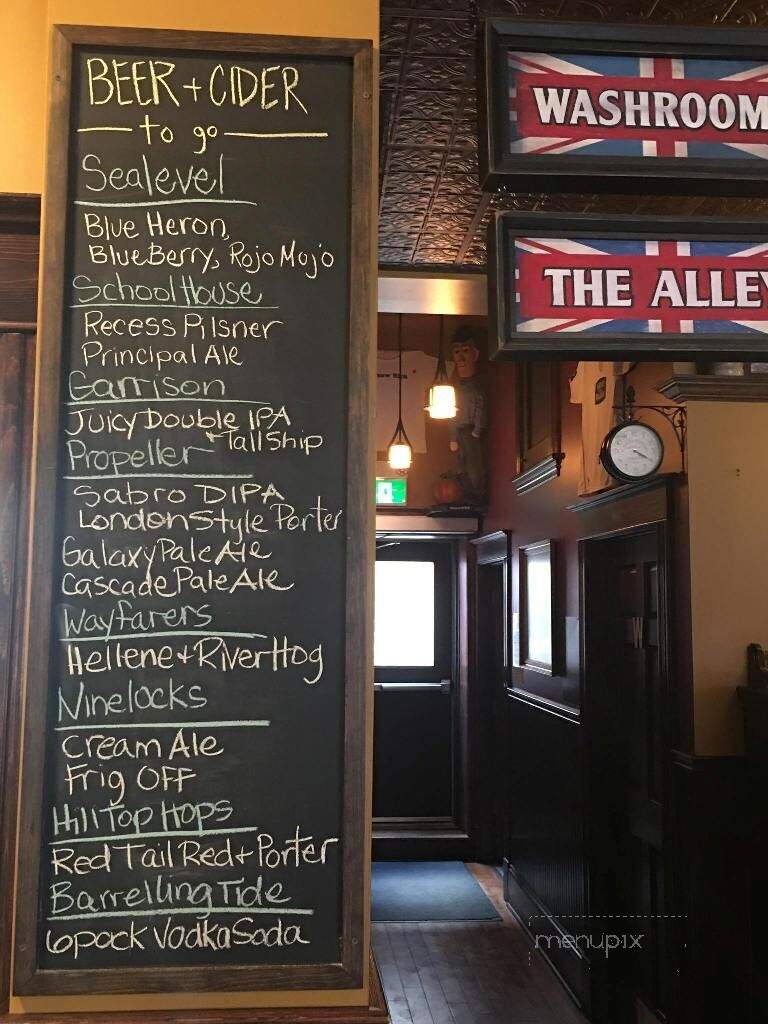 BEER + CIDER
to go
Sealevel
Blue Heron,
BlueBerry, Rojo Mojo
SchoolHouse
Recess Pilsner
Principal Ale
Garrison
Juicy Double IPA
+ Tall Ship
Propeller
Sabro DIPA
London Style Porter
Galaxy Pale Ale
Cascade Pale Ale
Wayfarers
Hellene + River Hog
Ninelocks
Cream Ale
Frig OFF
Hill Top Hops
Red Tail Red + Porter
Barrelling Tide
6pack Vodka Soda
WASHROOM
THE ALLEY
W
menupix